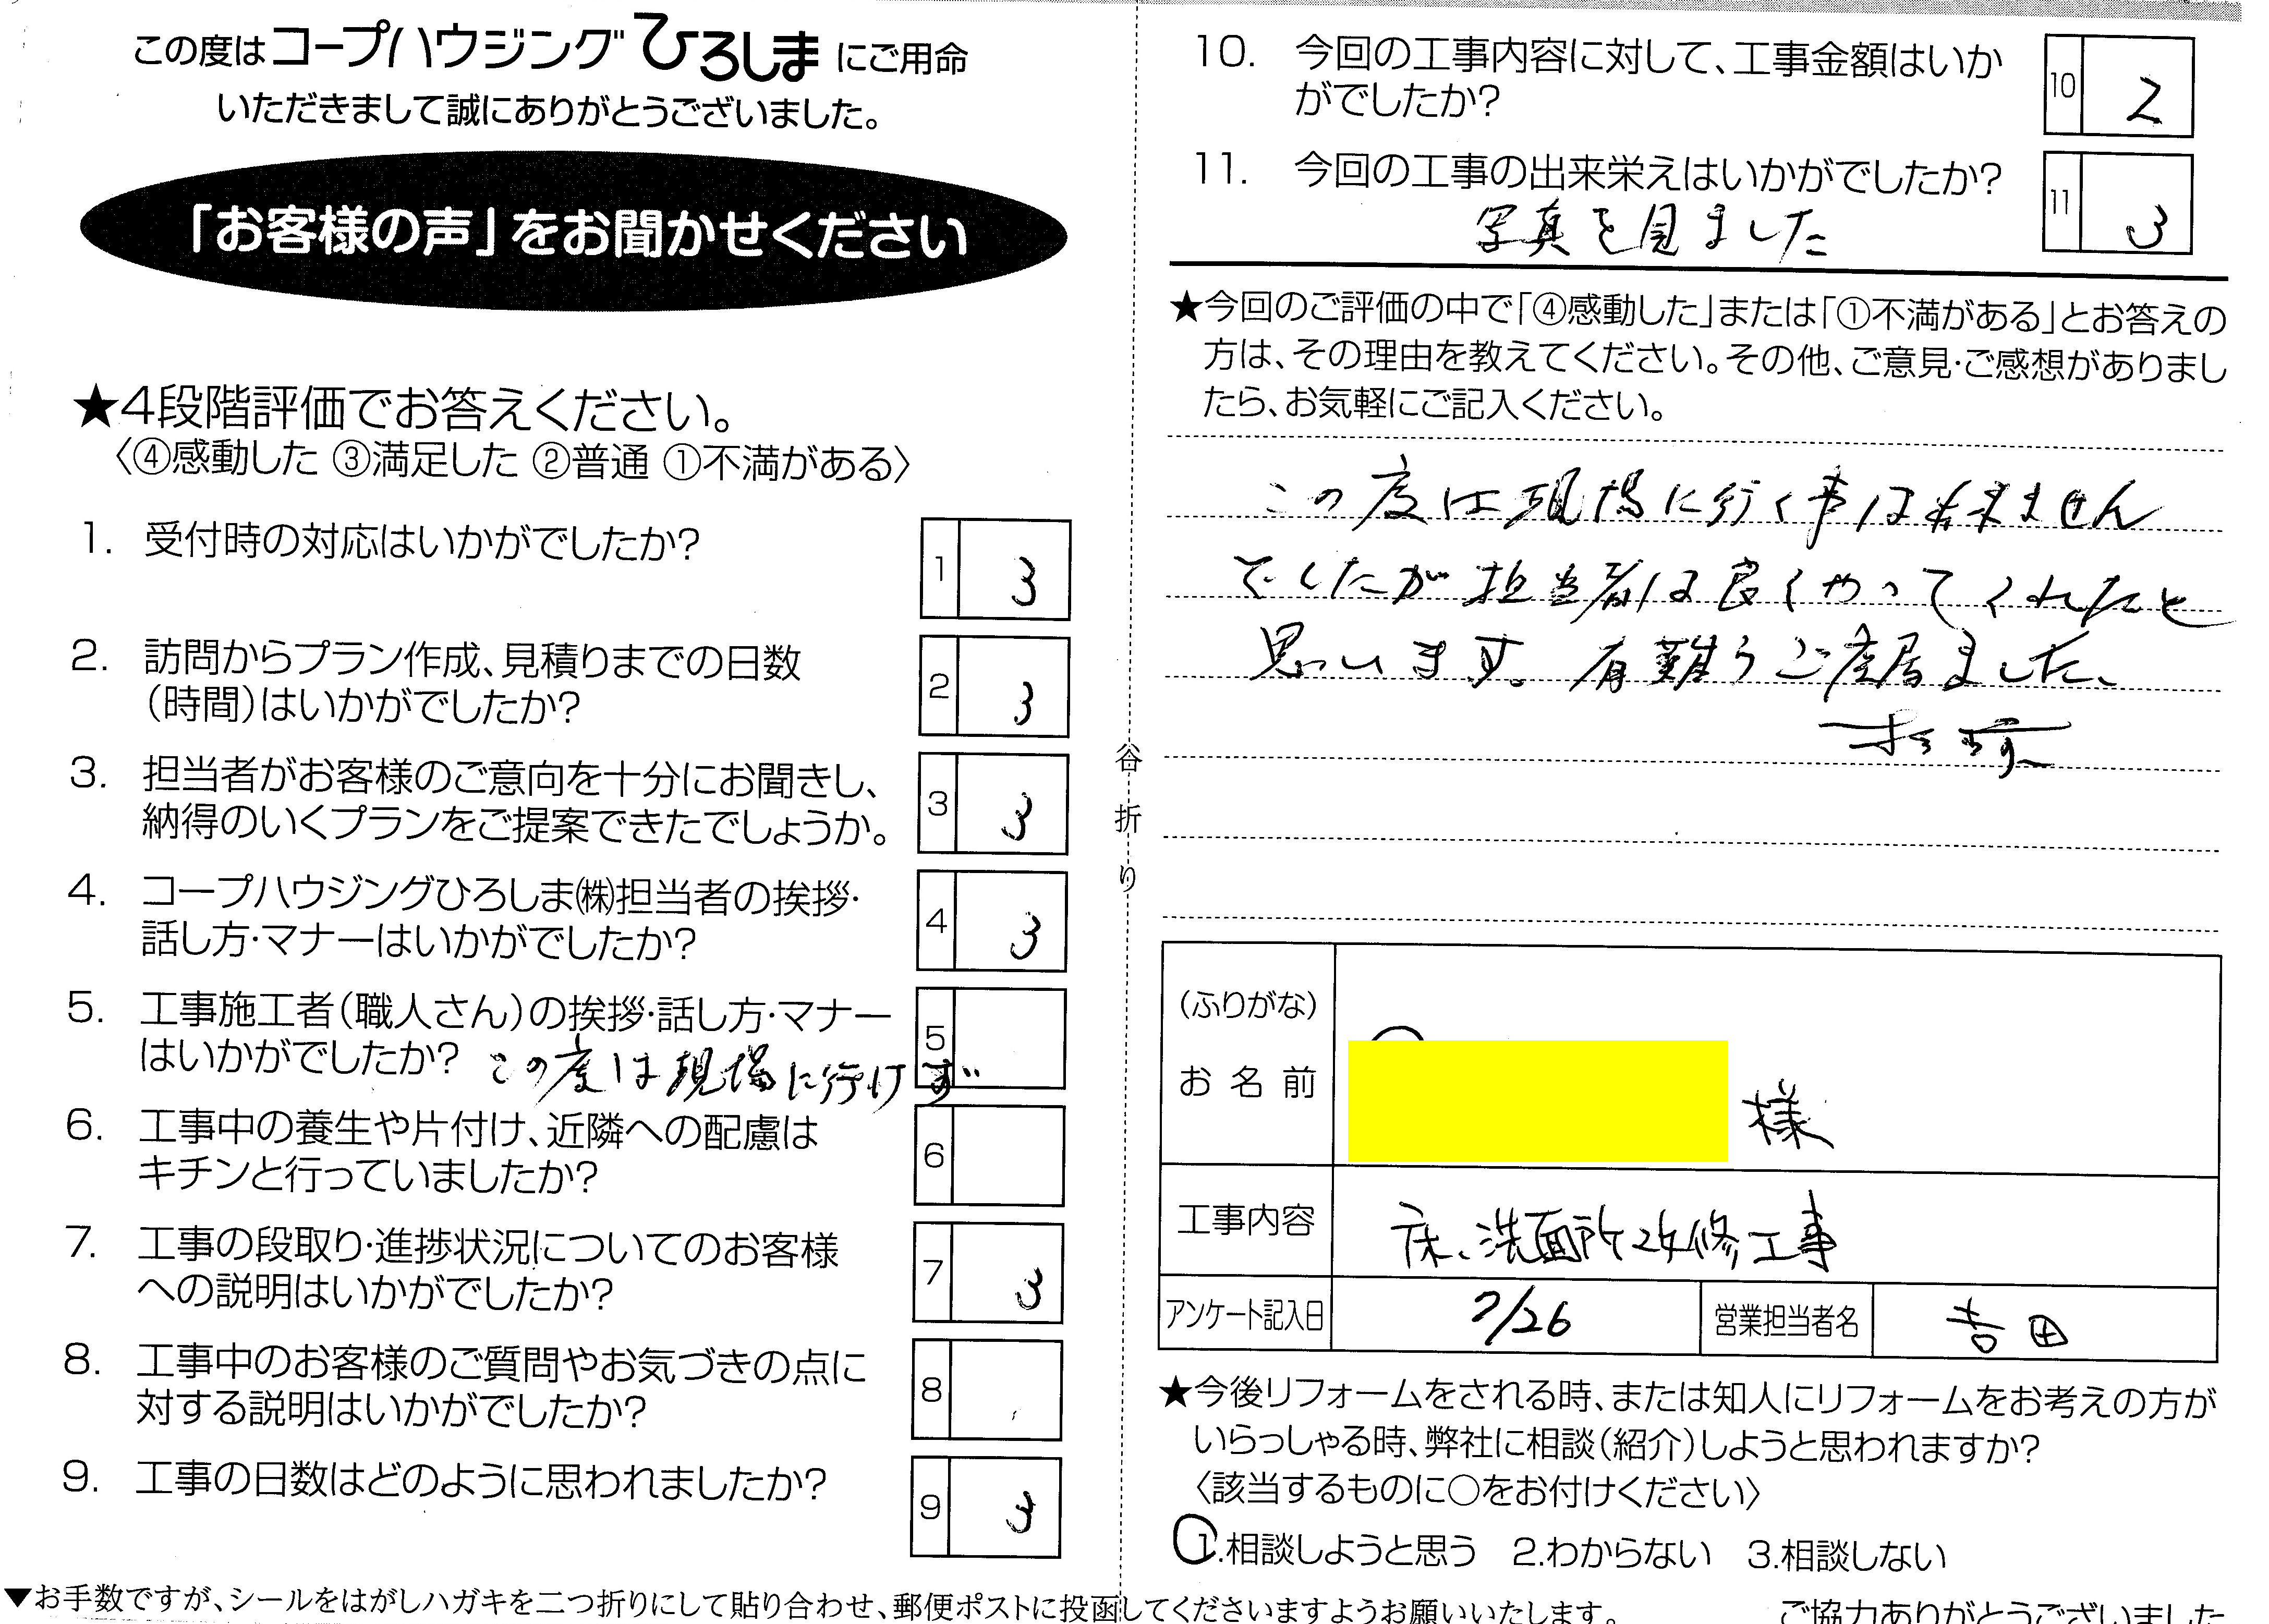 この度はコープハウジングひろしまにご用命
いただきまして誠にありがとうございました。
「お客様の声」をお聞かせください
★4段階評価でお答えください。
〈④感動した ③満足した ②普通 ①不満がある〉
1. 受付時の対応はいかがでしたか?
1 3
2. 訪問からプラン作成、見積りまでの日数
(時間)はいかがでしたか?
2 3
3. 担当者がお客様のご意向を十分にお聞きし、
納得のいくプランをご提案できたでしょうか。
3 3
4. コープハウジングひろしま㈱担当者の挨拶・
話し方・マナーはいかがでしたか?
4 3
5. 工事施工者(職人さん)の挨拶・話し方・マナー
はいかがでしたか? この度は現場に行けず
5
6. 工事中の養生や片付け、近隣への配慮は
キチンと行っていましたか?
6
7. 工事の段取り・進捗状況についてのお客様
への説明はいかがでしたか?
7 3
8. 工事中のお客様のご質問やお気づきの点に
対する説明はいかがでしたか?
8
9. 工事の日数はどのように思われましたか?
9 3
▼お手数ですが、シールをはがしハガキを二つ折りにして貼り合わせ、郵便ポストに投函してくださいますようお願いいたします。
谷折り
10. 今回の工事内容に対して、工事金額はいか
がでしたか?
10 2
11. 今回の工事の出来栄えはいかがでしたか?
写真を見ました
11 3
★今回のご評価の中で「④感動した」または「①不満がある」とお答えの
方は、その理由を教えてください。その他、ご意見・ご感想がありまし
たら、お気軽にご記入ください。
この度は現場に行く事は出来ません
でしたが担当者は良くやってくれたと
思います。有難うご座居ました、
(ふりがな)
お名前 様
工事内容 床、洗面所改修工事
アンケート記入日 7/26 営業担当者名 吉田
★今後リフォームをされる時、または知人にリフォームをお考えの方が
いらっしゃる時、弊社に相談(紹介)しようと思われますか?
〈該当するものに○をお付けください〉
1.相談しようと思う 2.わからない 3.相談しない
ご協力ありがとうございました